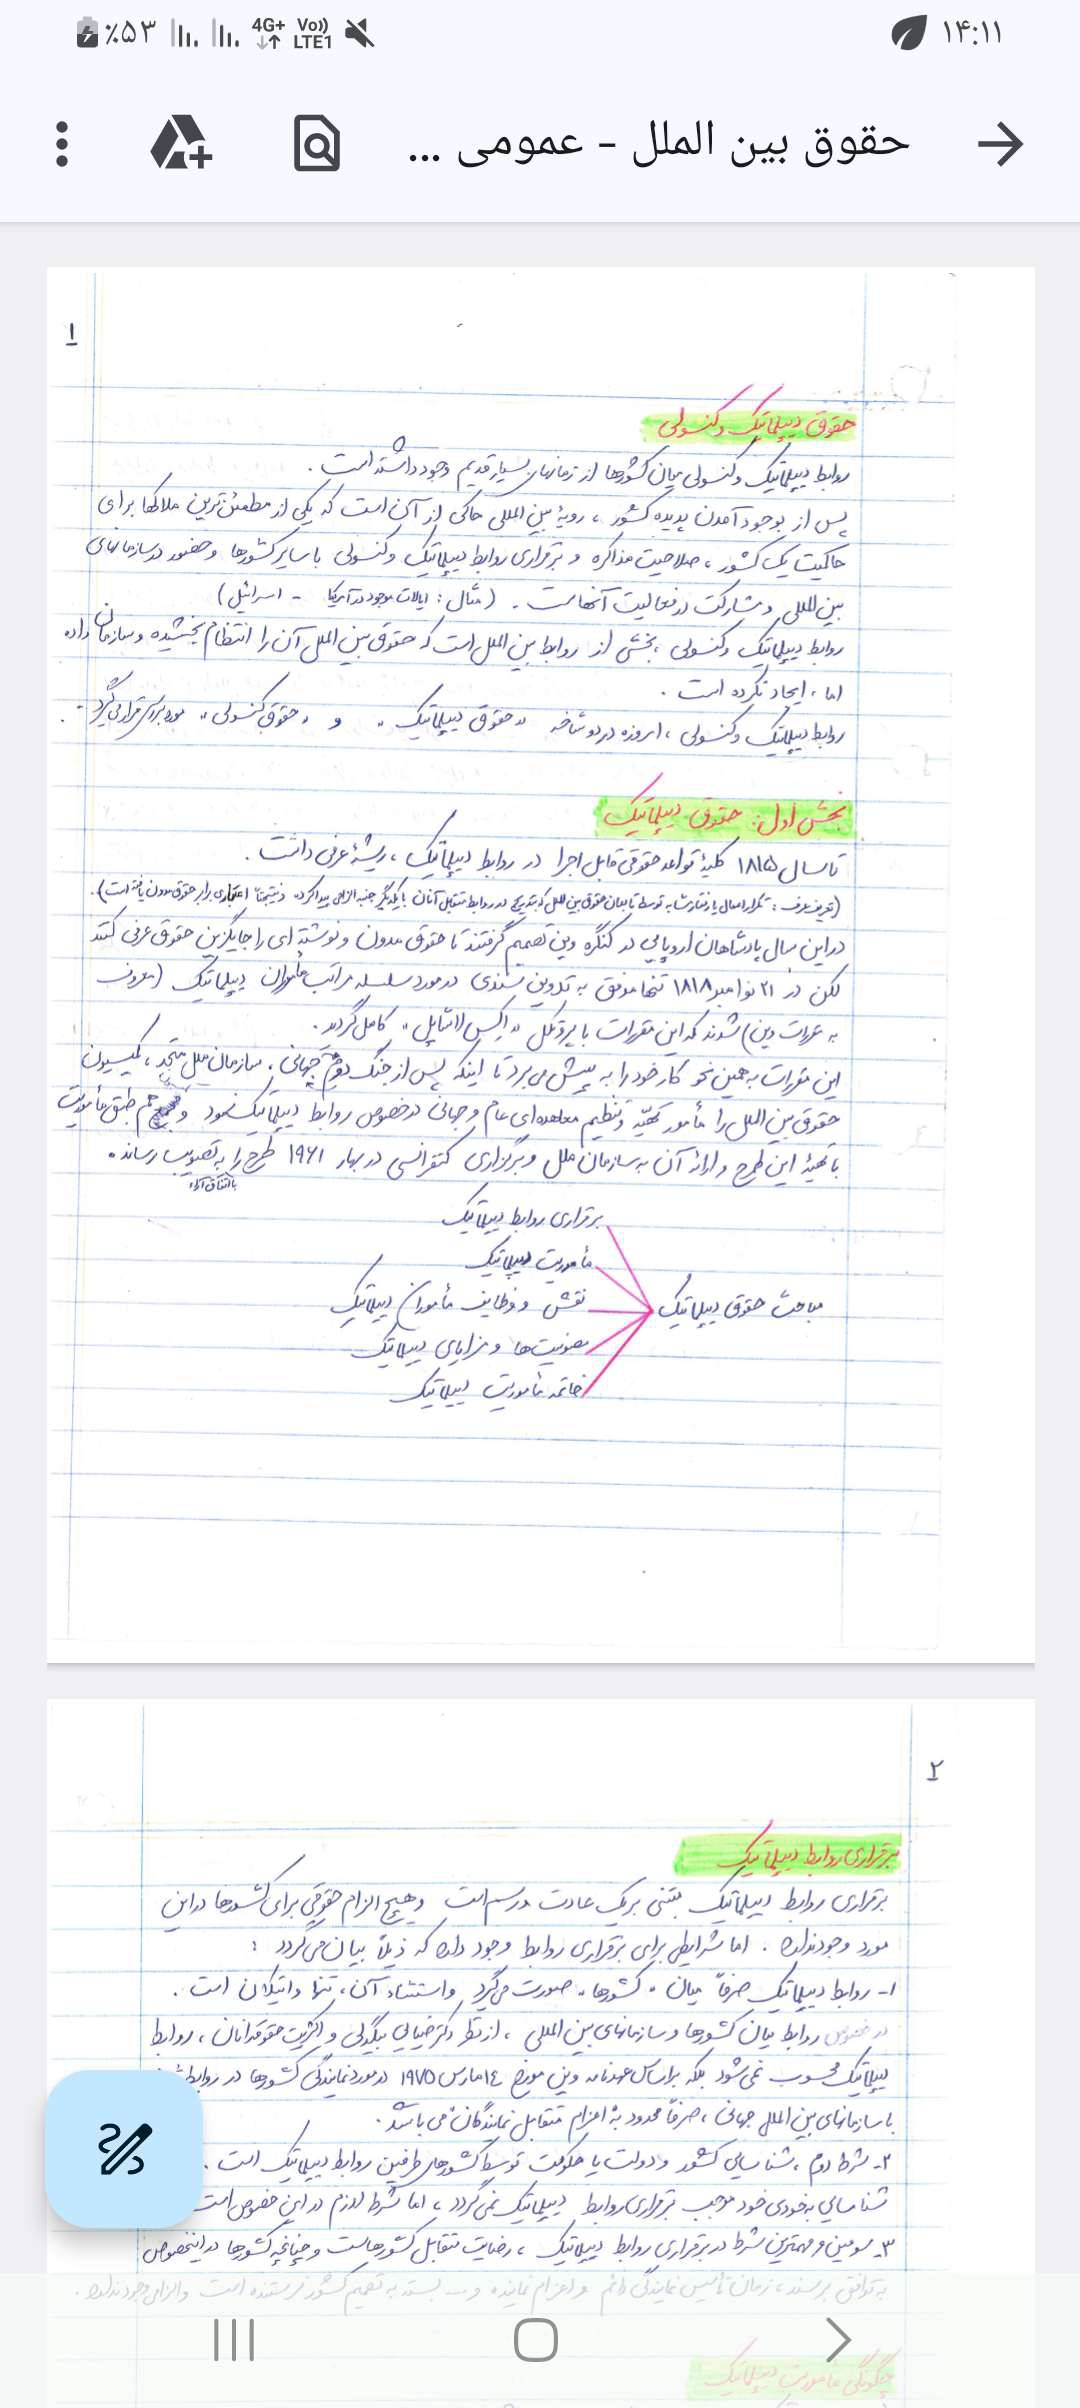 ۱۴:۱۱
4G+ Vo)) LTE1
٪۵۳
حقوق بین الملل - عمومی ...
۱
حقوق دیپلماتیک و کنسولی
روابط دیپلماتیک و کنسولی میان کشورها از زمانهای بسیار قدیم وجود داشته است .
پس از بوجود آمدن پدیده کشور ، رویۀ بین المللی حاکی از آن است که یکی از مطمئن ترین ملاکها برای
حاکمیت یک کشور ، صلاحیت مذاکره و برقراری روابط دیپلماتیک و کنسولی با سایر کشورها و حضور در سازمانهای
بین المللی و مشارکت در فعالیت آنهاست . (مثال : ایالات موجود در آمریکا - اسرائیل)
روابط دیپلماتیک و کنسولی ، بخشی از روابط بین الملل است که حقوق بین الملل آن را انتظام بخشیده و سازمان داده
اما ، ایجاد نکرده است .
روابط دیپلماتیک و کنسولی ، امروزه در دو شاخه «حقوق دیپلماتیک» و «حقوق کنسولی» مورد بررسی قرار می گیرد .
بخش اول: حقوق دیپلماتیک
تا سال ۱۸۱۵ کلیۀ قواعد حقوقی قابل اجرا در روابط دیپلماتیک ، ریشۀ عرفی داشت .
(تعریف عرف : تکرار اعمال یا رفتار مشابه توسط تابعان حقوق بین الملل که بتدریج در روابط متقابل آنان با یکدیگر جنبه الزامی پیدا کرده و نتیجتاً اعتباری برابر حقوق مدون یافته است).
در این سال پادشاهان اروپایی در کنگره وین تصمیم گرفتند تا حقوق مدون و نوشته ای را جایگزین حقوق عرفی کنند
لکن در ۲۱ نوامبر ۱۸۱۸ تنها موفق به تدوین سندی در مورد سلسله مراتب مأموران دیپلماتیک (معروف
به مقررات وین) شدند که این مقررات با پروتکل «اکس لاشاپل» کامل گردید .
این مقررات به همین نحو کار خود را به پیش می برد تا اینکه پس از جنگ دوم جهانی ، سازمان ملل متحد ، کمیسیون
حقوق بین الملل را مأمور تهیّه و تنظیم معاهده ای عام و جهانی در خصوص روابط دیپلماتیک نمود و هم طبق مأموریت
با تهیۀ این طرح و ارائه آن به سازمان ملل و برگزاری کنفرانسی در بهار ۱۹۶۱ طرح را به تصویب رساند .
با اتفاق آراء
برقراری روابط دیپلماتیک
مأموریت دیپلماتیک
مباحث حقوق دیپلماتیک
نقش و وظایف مأموران دیپلماتیک
مصونیت ها و مزایای دیپلماتیک
خاتمه مأموریت دیپلماتیک
۲
برقراری روابط دیپلماتیک
برقراری روابط دیپلماتیک مبتنی بر یک عادت و رسم است و هیچ الزام حقوقی برای کشورها در این
مورد وجود ندارد . اما شرایطی برای برقراری روابط وجود دارد که ذیلاً بیان می گردد :
۱- روابط دیپلماتیک صرفاً میان «کشورها» صورت می گیرد و استثناء آن ، تنها واتیکان است .
در خصوص روابط میان کشورها و سازمانهای بین المللی ، از نظر دکتر ضیایی بیگدلی و اکثریت حقوقدانان ، روابط
دیپلماتیک محسوب نمی شود بلکه بر اساس عهدنامه وین مورخ ۱۴ مارس ۱۹۷۵ در مورد نمایندگی کشورها در روابط
با سازمانهای بین المللی جهانی ، صرفاً محدود به اعزام متقابل نمایندگان می باشد .
۲- شرط دوم ، شناسایی کشور و دولت یا حکومت توسط کشورهای طرفین روابط دیپلماتیک است .
شناسایی به خودی خود موجب برقراری روابط دیپلماتیک نمی گردد ، اما شرط لازم در این خصوص است
۳- سومین و مهمترین شرط در برقراری روابط دیپلماتیک ، رضایت متقابل کشورهاست و چنانچه کشورها در این خصوص
به توافق برسند ، زمان تأسیس نمایندگی دائم و اعزام نماینده و ... بسته به تصمیم کشور فرستنده است و الزامی وجود ندارد .
چگونگی مأموریت دیپلماتیک